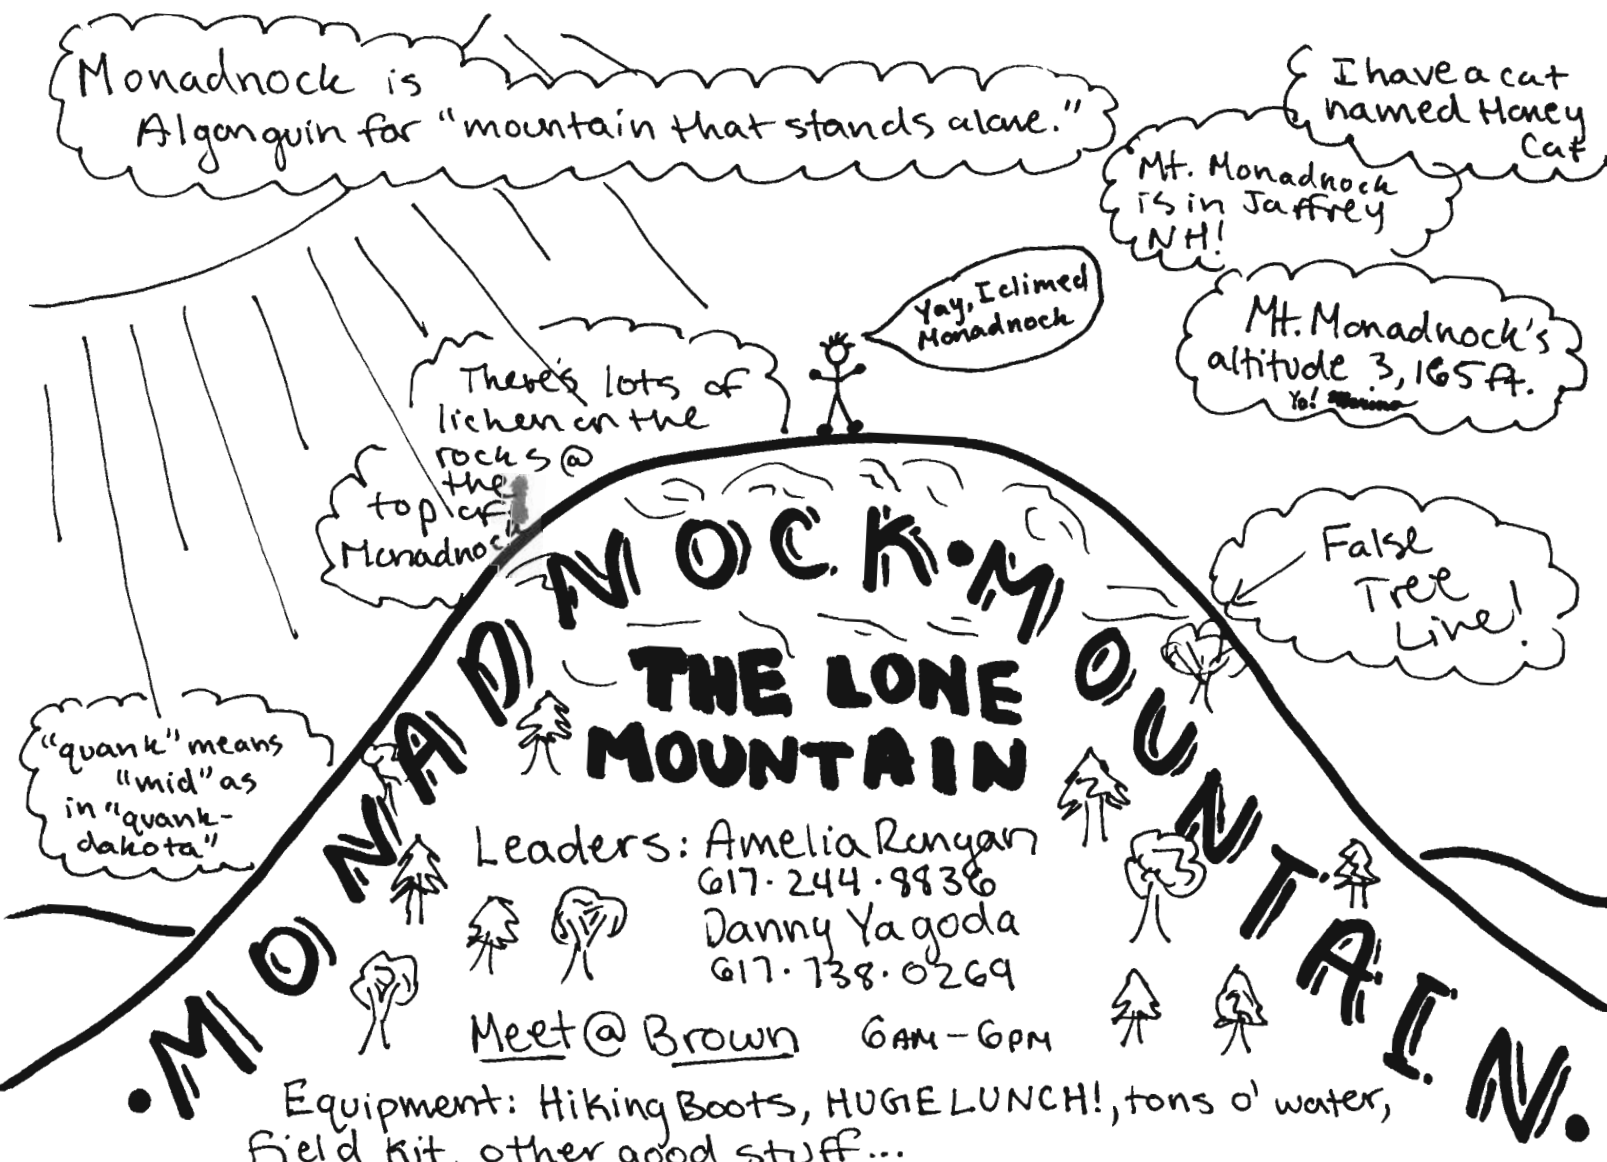 Monadnock is
Algonquin for "mountain that stands alone."
I have a cat
named Honey
Cat
Mt. Monadnock
is in Jaffrey
NH!
Yay, I climed
Monadnock
Mt. Monadnock's
altitude 3,165 ft.
Yo!
There's lots of
lichen on the
rocks @
the
top of
Monadnock
False
Tree
Line!
"quank" means
"mid" as
in "quank-
dakota"
•MONADNOCK•MOUNTAIN•
THE LONE
MOUNTAIN
Leaders: Amelia Runyan
617·244·8836
Danny Yagoda
617·738·0269
Meet @ Brown 6AM-6PM
Equipment: Hiking Boots, HUGE LUNCH!, tons o' water,
field kit, other good stuff...